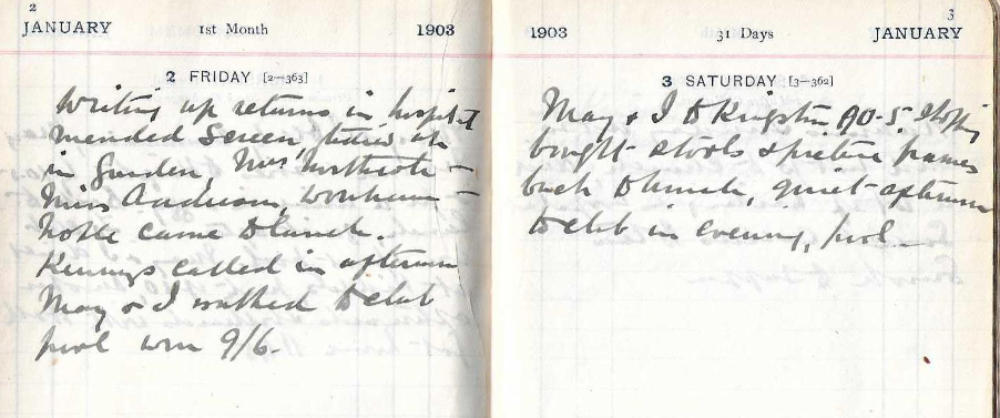 2
JANUARY 1st Month 1903
2 FRIDAY [2—363]
Writing up returns in hospital
mended screen,
in garden, Mrs. Northcote —
Miss Anderson, —
Noble came to lunch.
Kennys called in afternoon
May & I walked to club
pool won 9/6.
3
1903 31 Days JANUARY
3 SATURDAY [3—362]
May & I to Kingston shopping
bought stools & picture frames
back to lunch, quiet afternoon
to club in evening, pool —